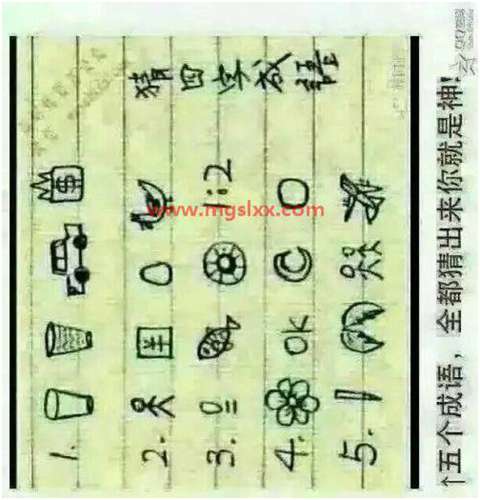 猜四字成語
1.
$
2.
羊
3.
1:2
4.
OK
5.
www.mgslxx.com
↑五个成语，全都猜出来你就是神!